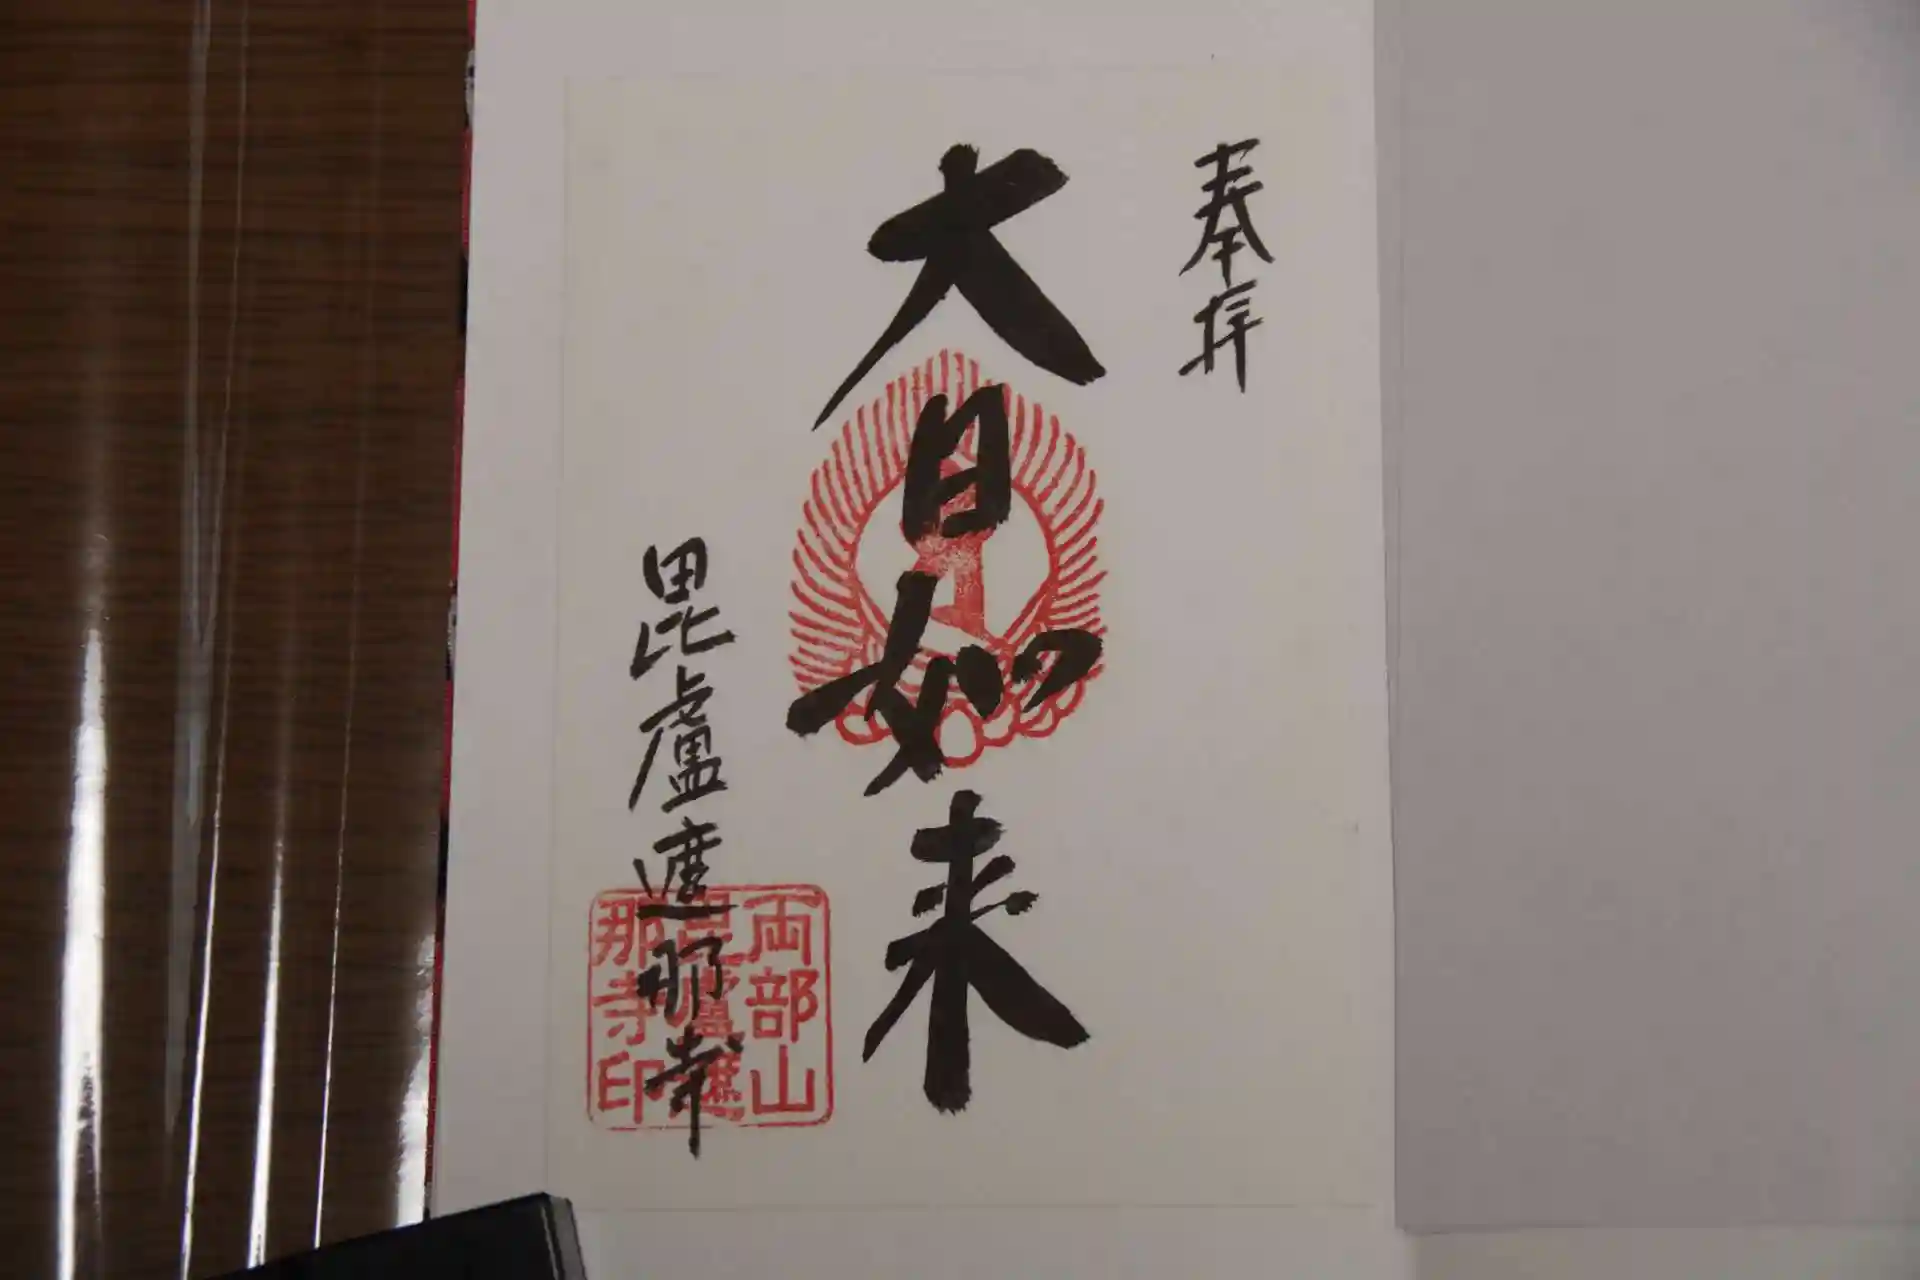 奉拝
大日如来
毘盧遮那寺
両部山
毘盧遮
那寺印